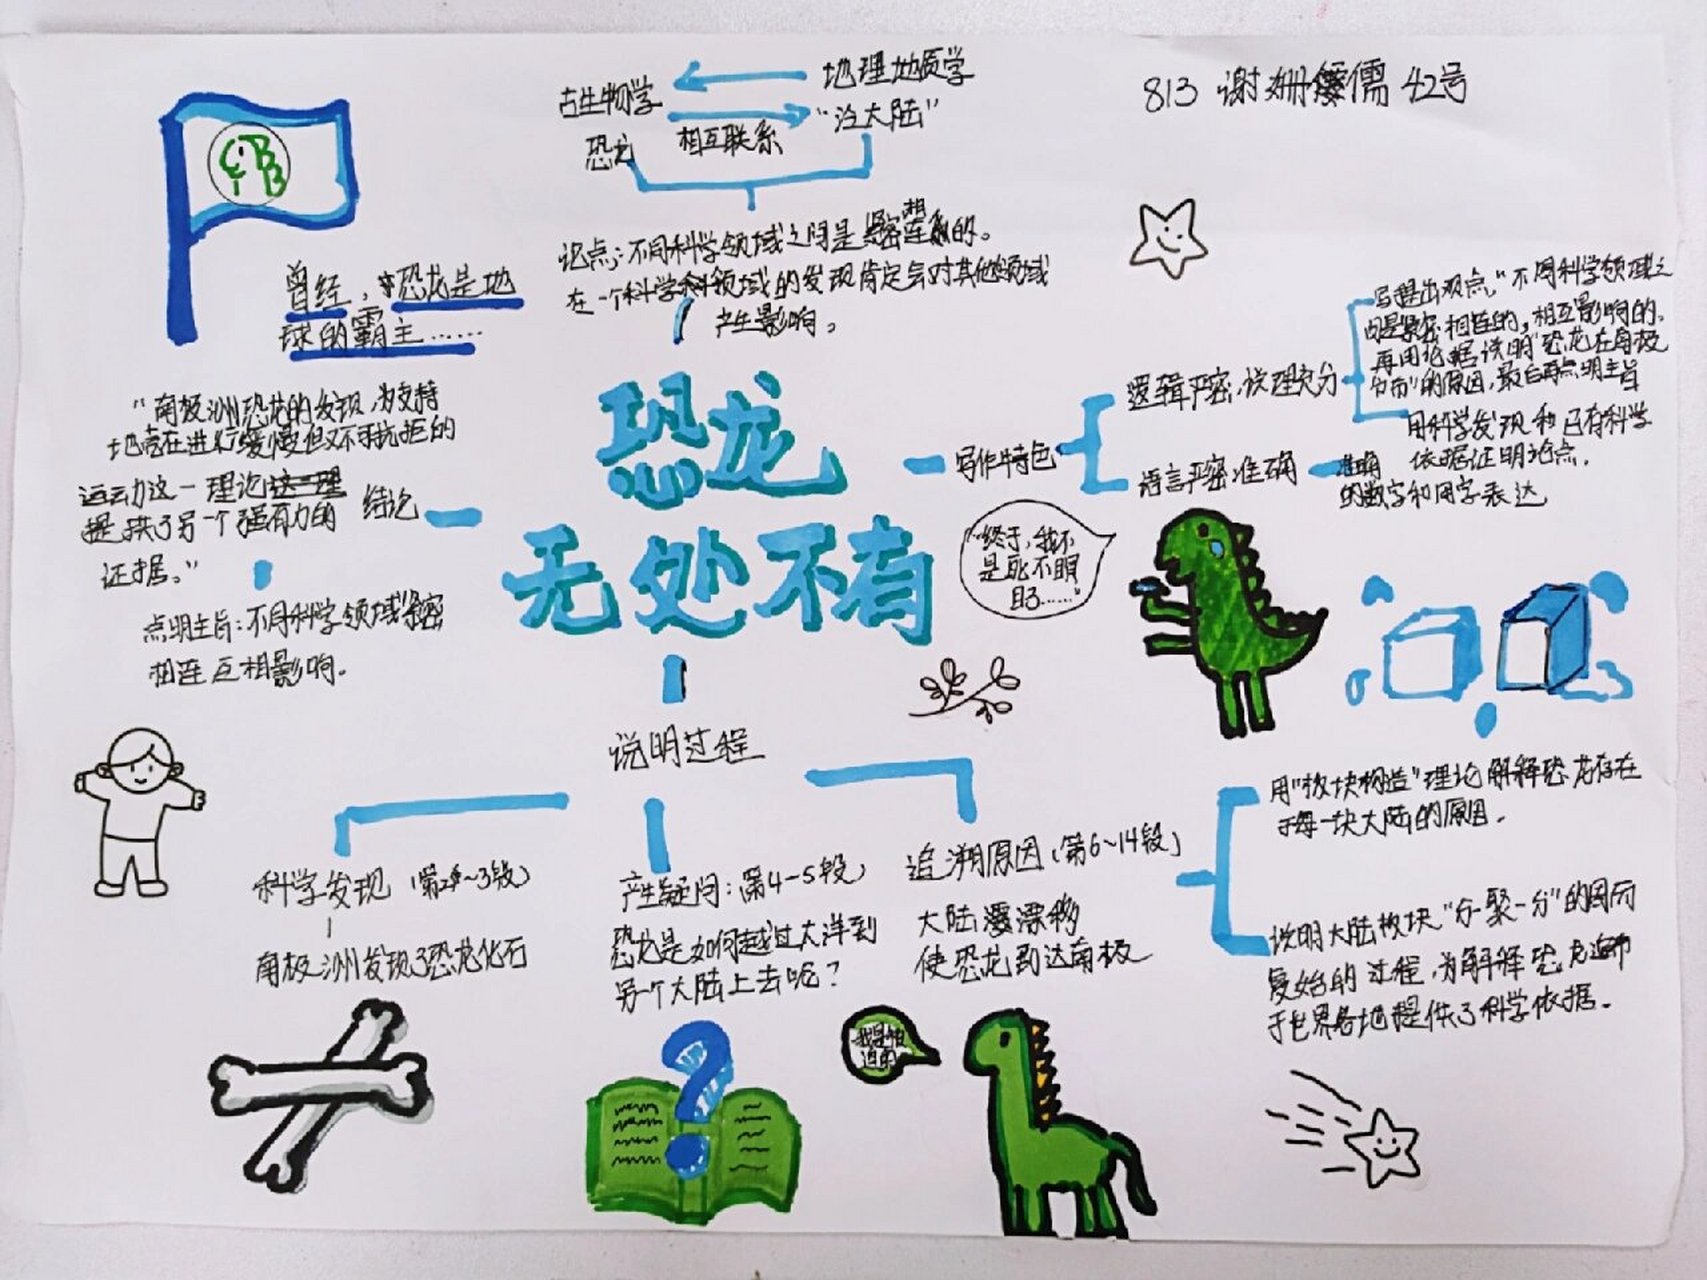 813 谢姗 儒 42号
古生物学
地理地质学
恐龙
相互联系
“泛大陆”
论点：不同科学领域之间是紧密相连的。
在一个科学领域的发现肯定会对其他领域
产生影响。
曾经，恐龙是地
球的霸主……
恐龙
无处不有
“南极洲恐龙的发现，为支持
地壳在进行缓慢但又不可抗拒的
运动这一理论
提供了另一个强有力的
证据。”
结论
点明主旨：不同科学领域紧密
相连互相影响。
写作特色
逻辑严密，说理充分
写提出观点，“不同科学领域之
间是紧密相连的，相互影响的。
再用论据说明“恐龙在南极
分布”的原因，最后再点明主旨
用科学发现和已有科学
依据证明论点。
语言严密准确
准确
的数字和用字表达
“终于，我不
是死不瞑
目了……”
说明过程
科学发现（第2~3段）
南极洲发现了恐龙化石
产生疑问：（第4-5段）
恐龙是如何越过大洋到
另个大陆上去呢？
追溯原因（第6~14段）
大陆漂移
使恐龙到达南极
用“板块构造”理论解释恐龙存在
于每一块大陆的原因。
说明大陆板块“分-聚-分”的周而
复始的过程，为解释恐龙遍布
于世界各地提供了科学依据。
我是被
迫的